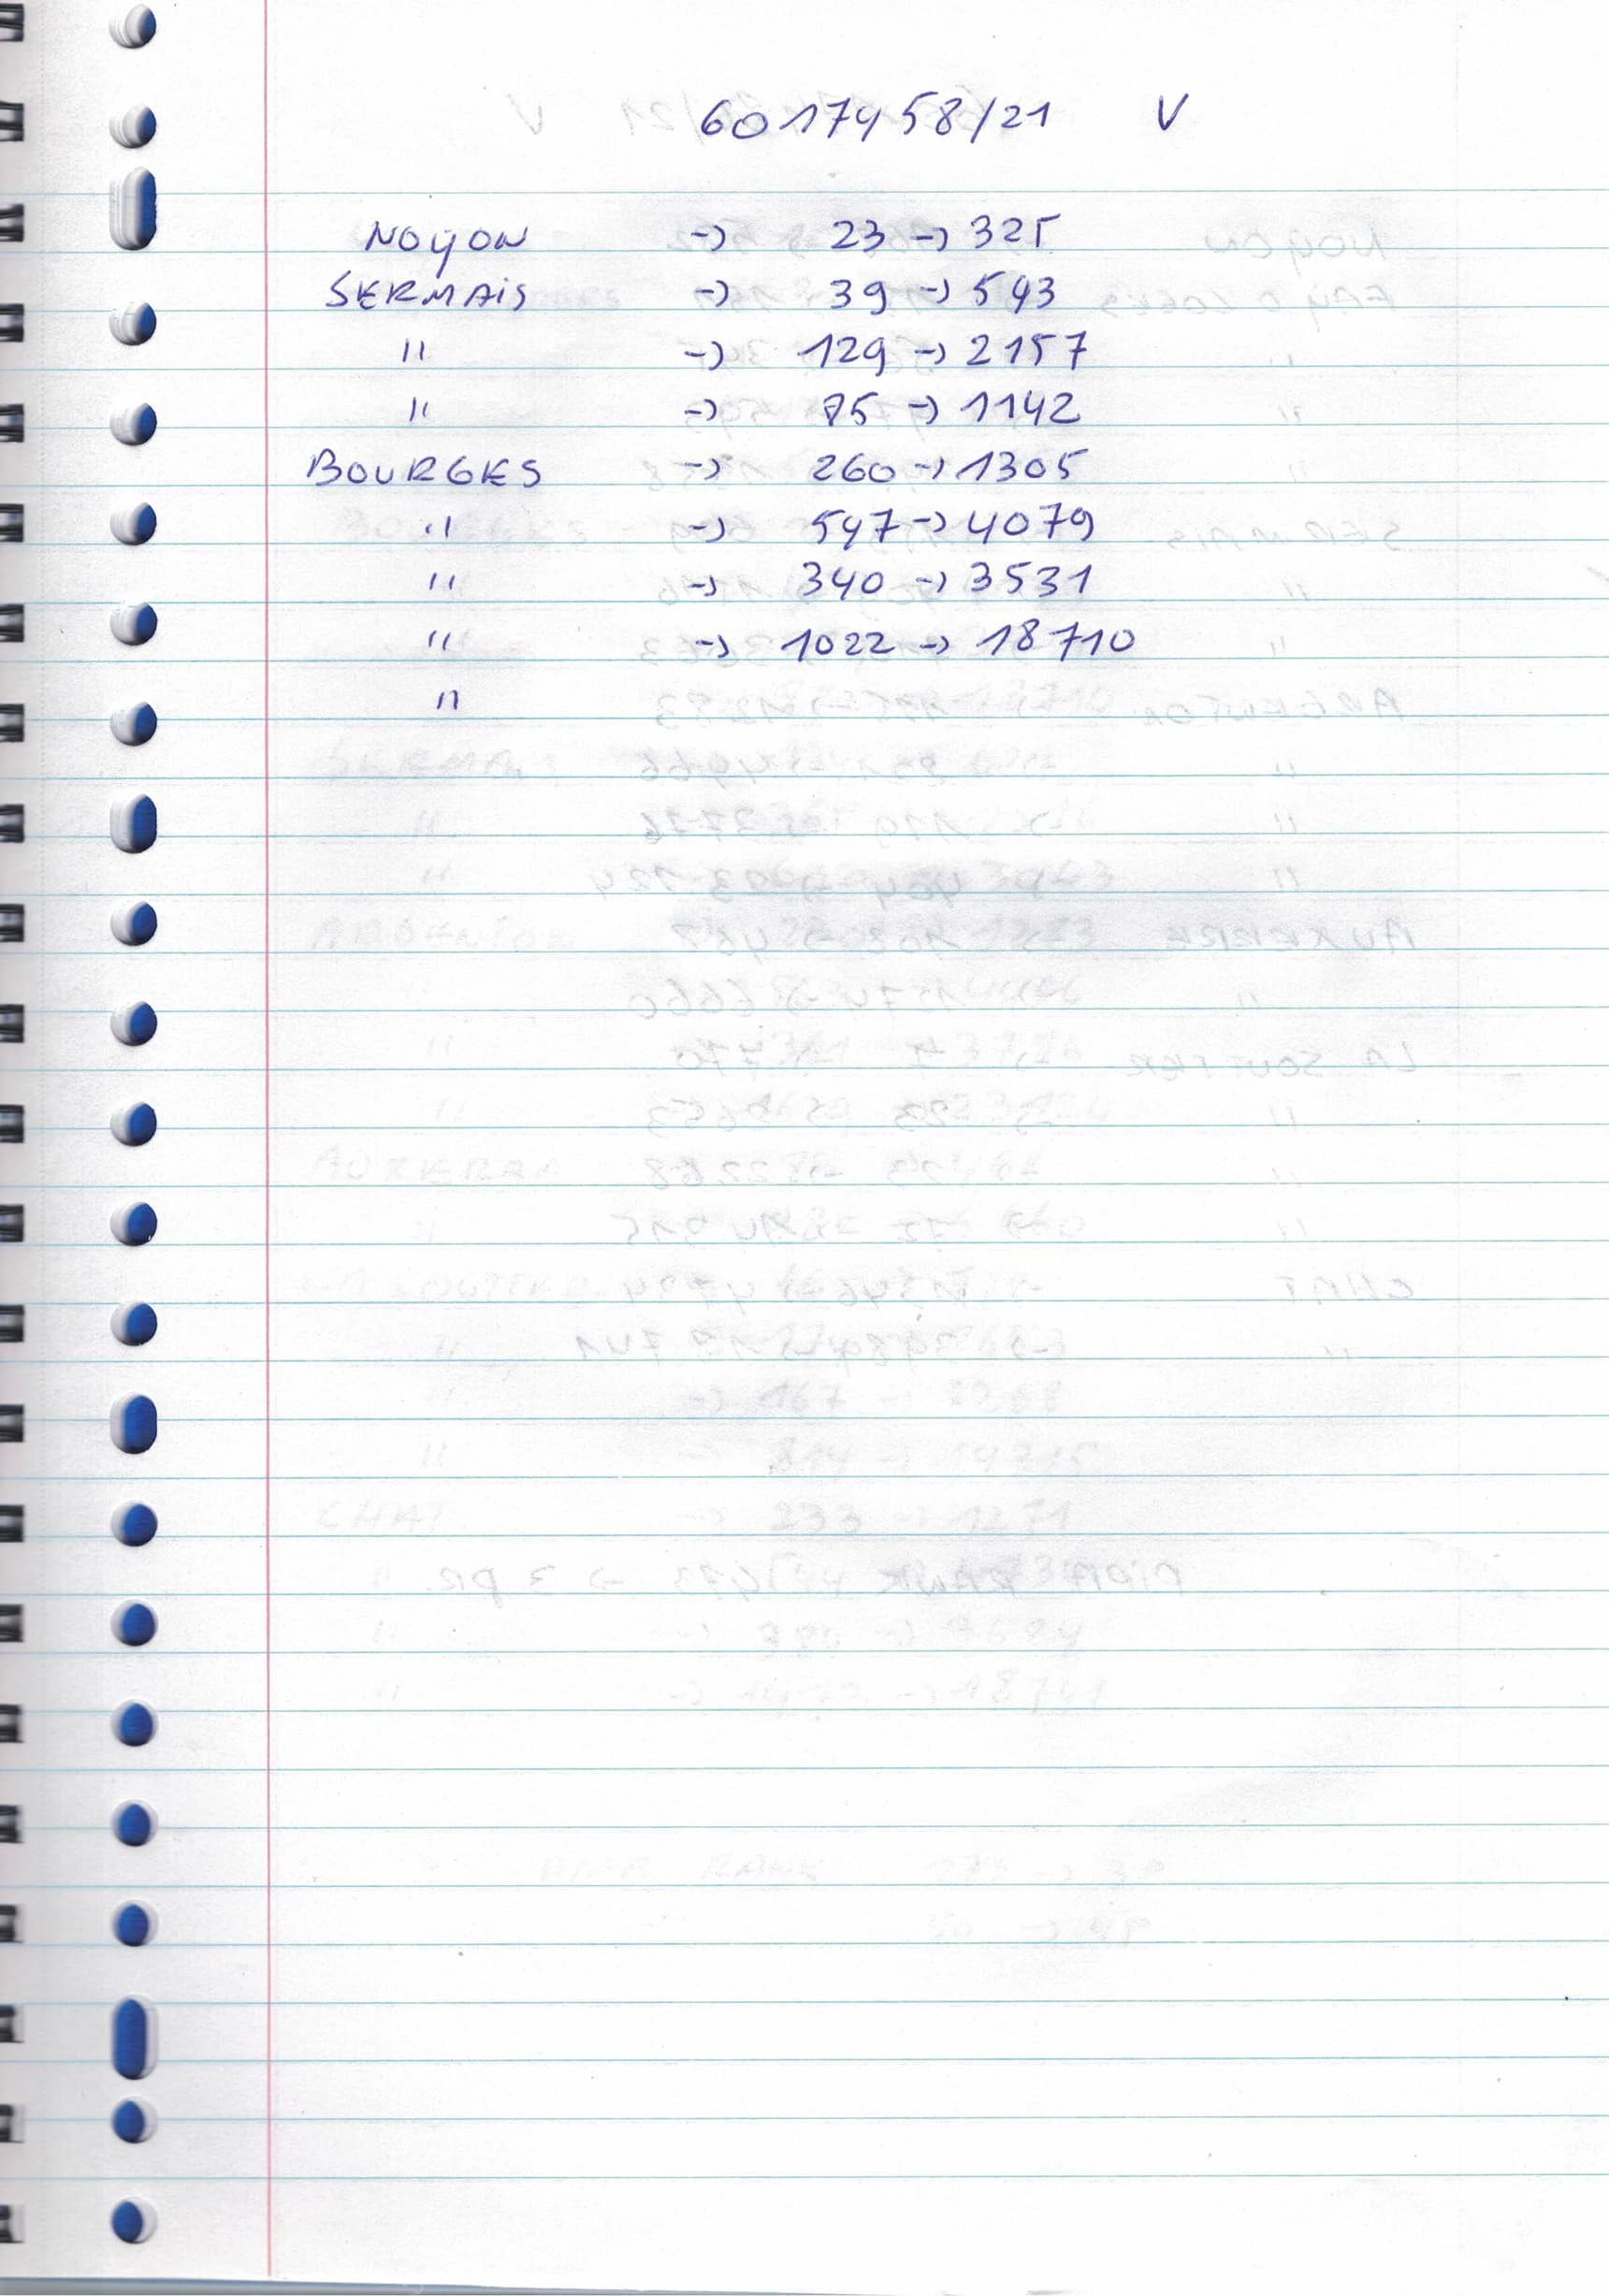 6017458/21 V
NOYON -> 23 -> 325
SERMAiS -> 39 -> 543
" -> 129 -> 2157
" -> 85 -> 1142
BOURGES -> 260 -> 1305
" -> 547 -> 4079
" -> 340 -> 3531
" -> 1022 -> 18710
"